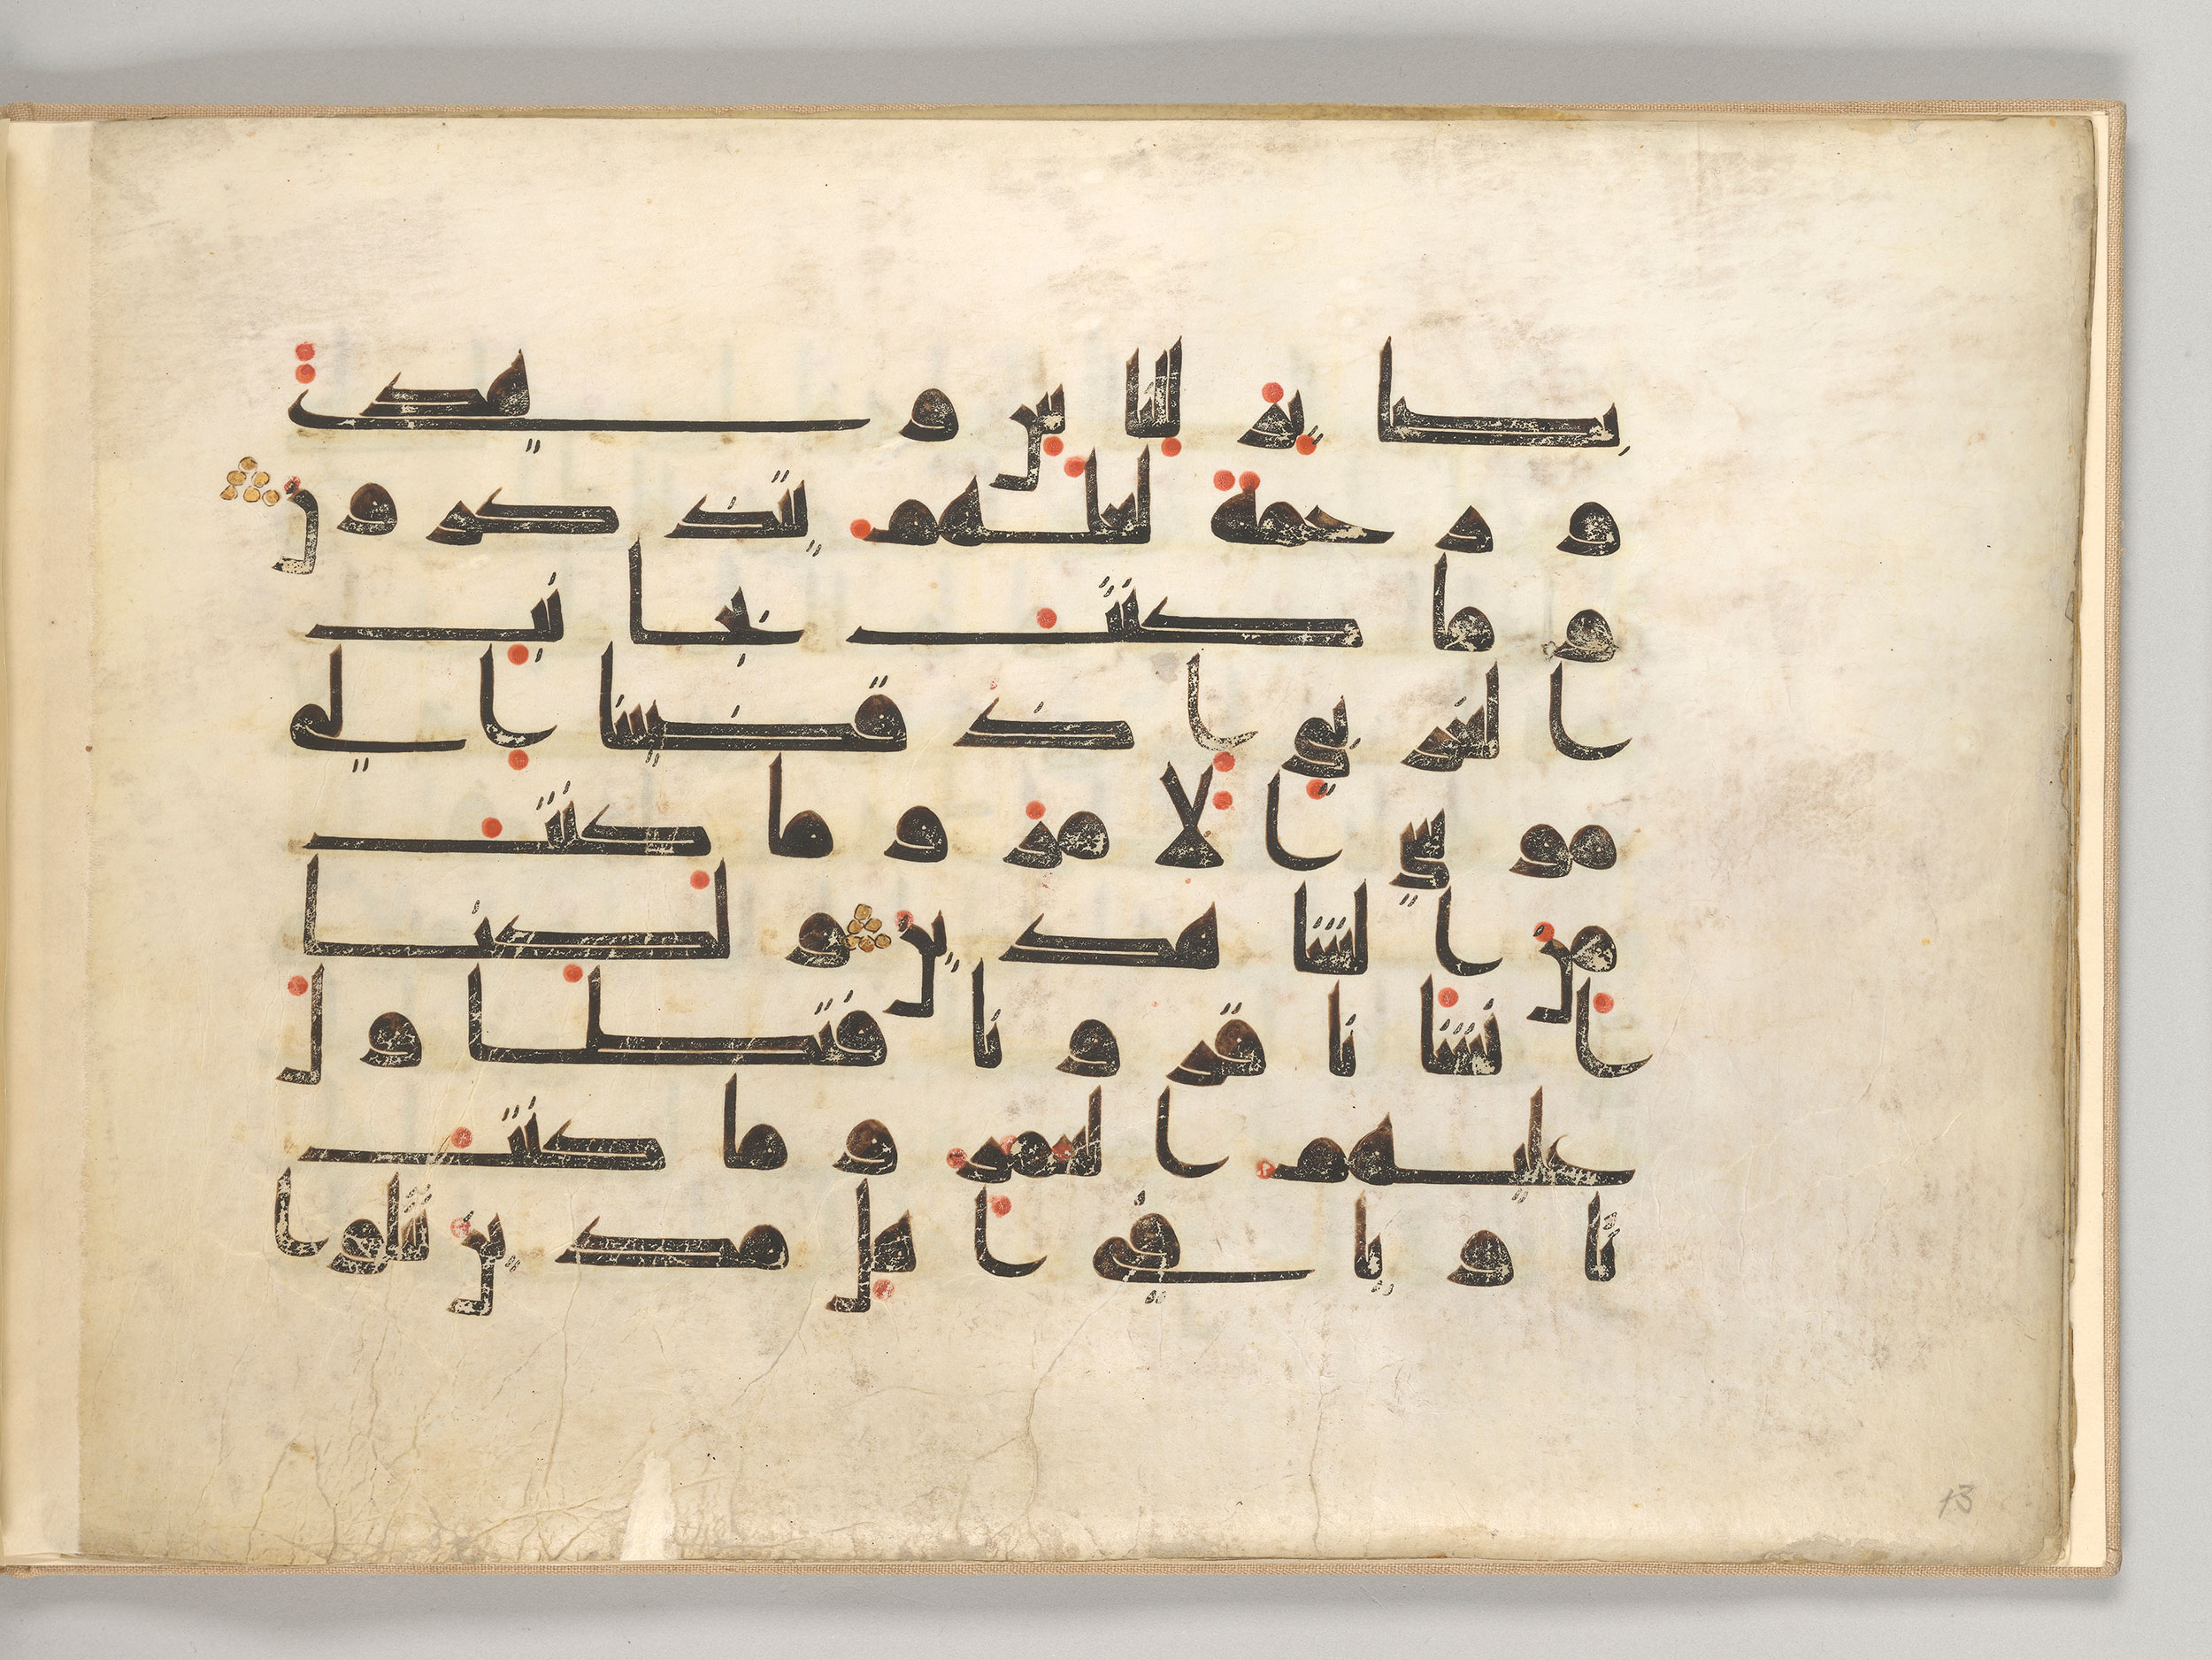 بصاير للناس وهدى
ورحمة لعلهم يتذكرون
وما كنت بجانب
الغربي اذ قضينا الى
موسى الامر وما كنت
من الشهدين ولكنا
انشانا قرونا فتطاول
عليهم العمر وما كنت
ثاويا في اهل مدين تتلوا
13